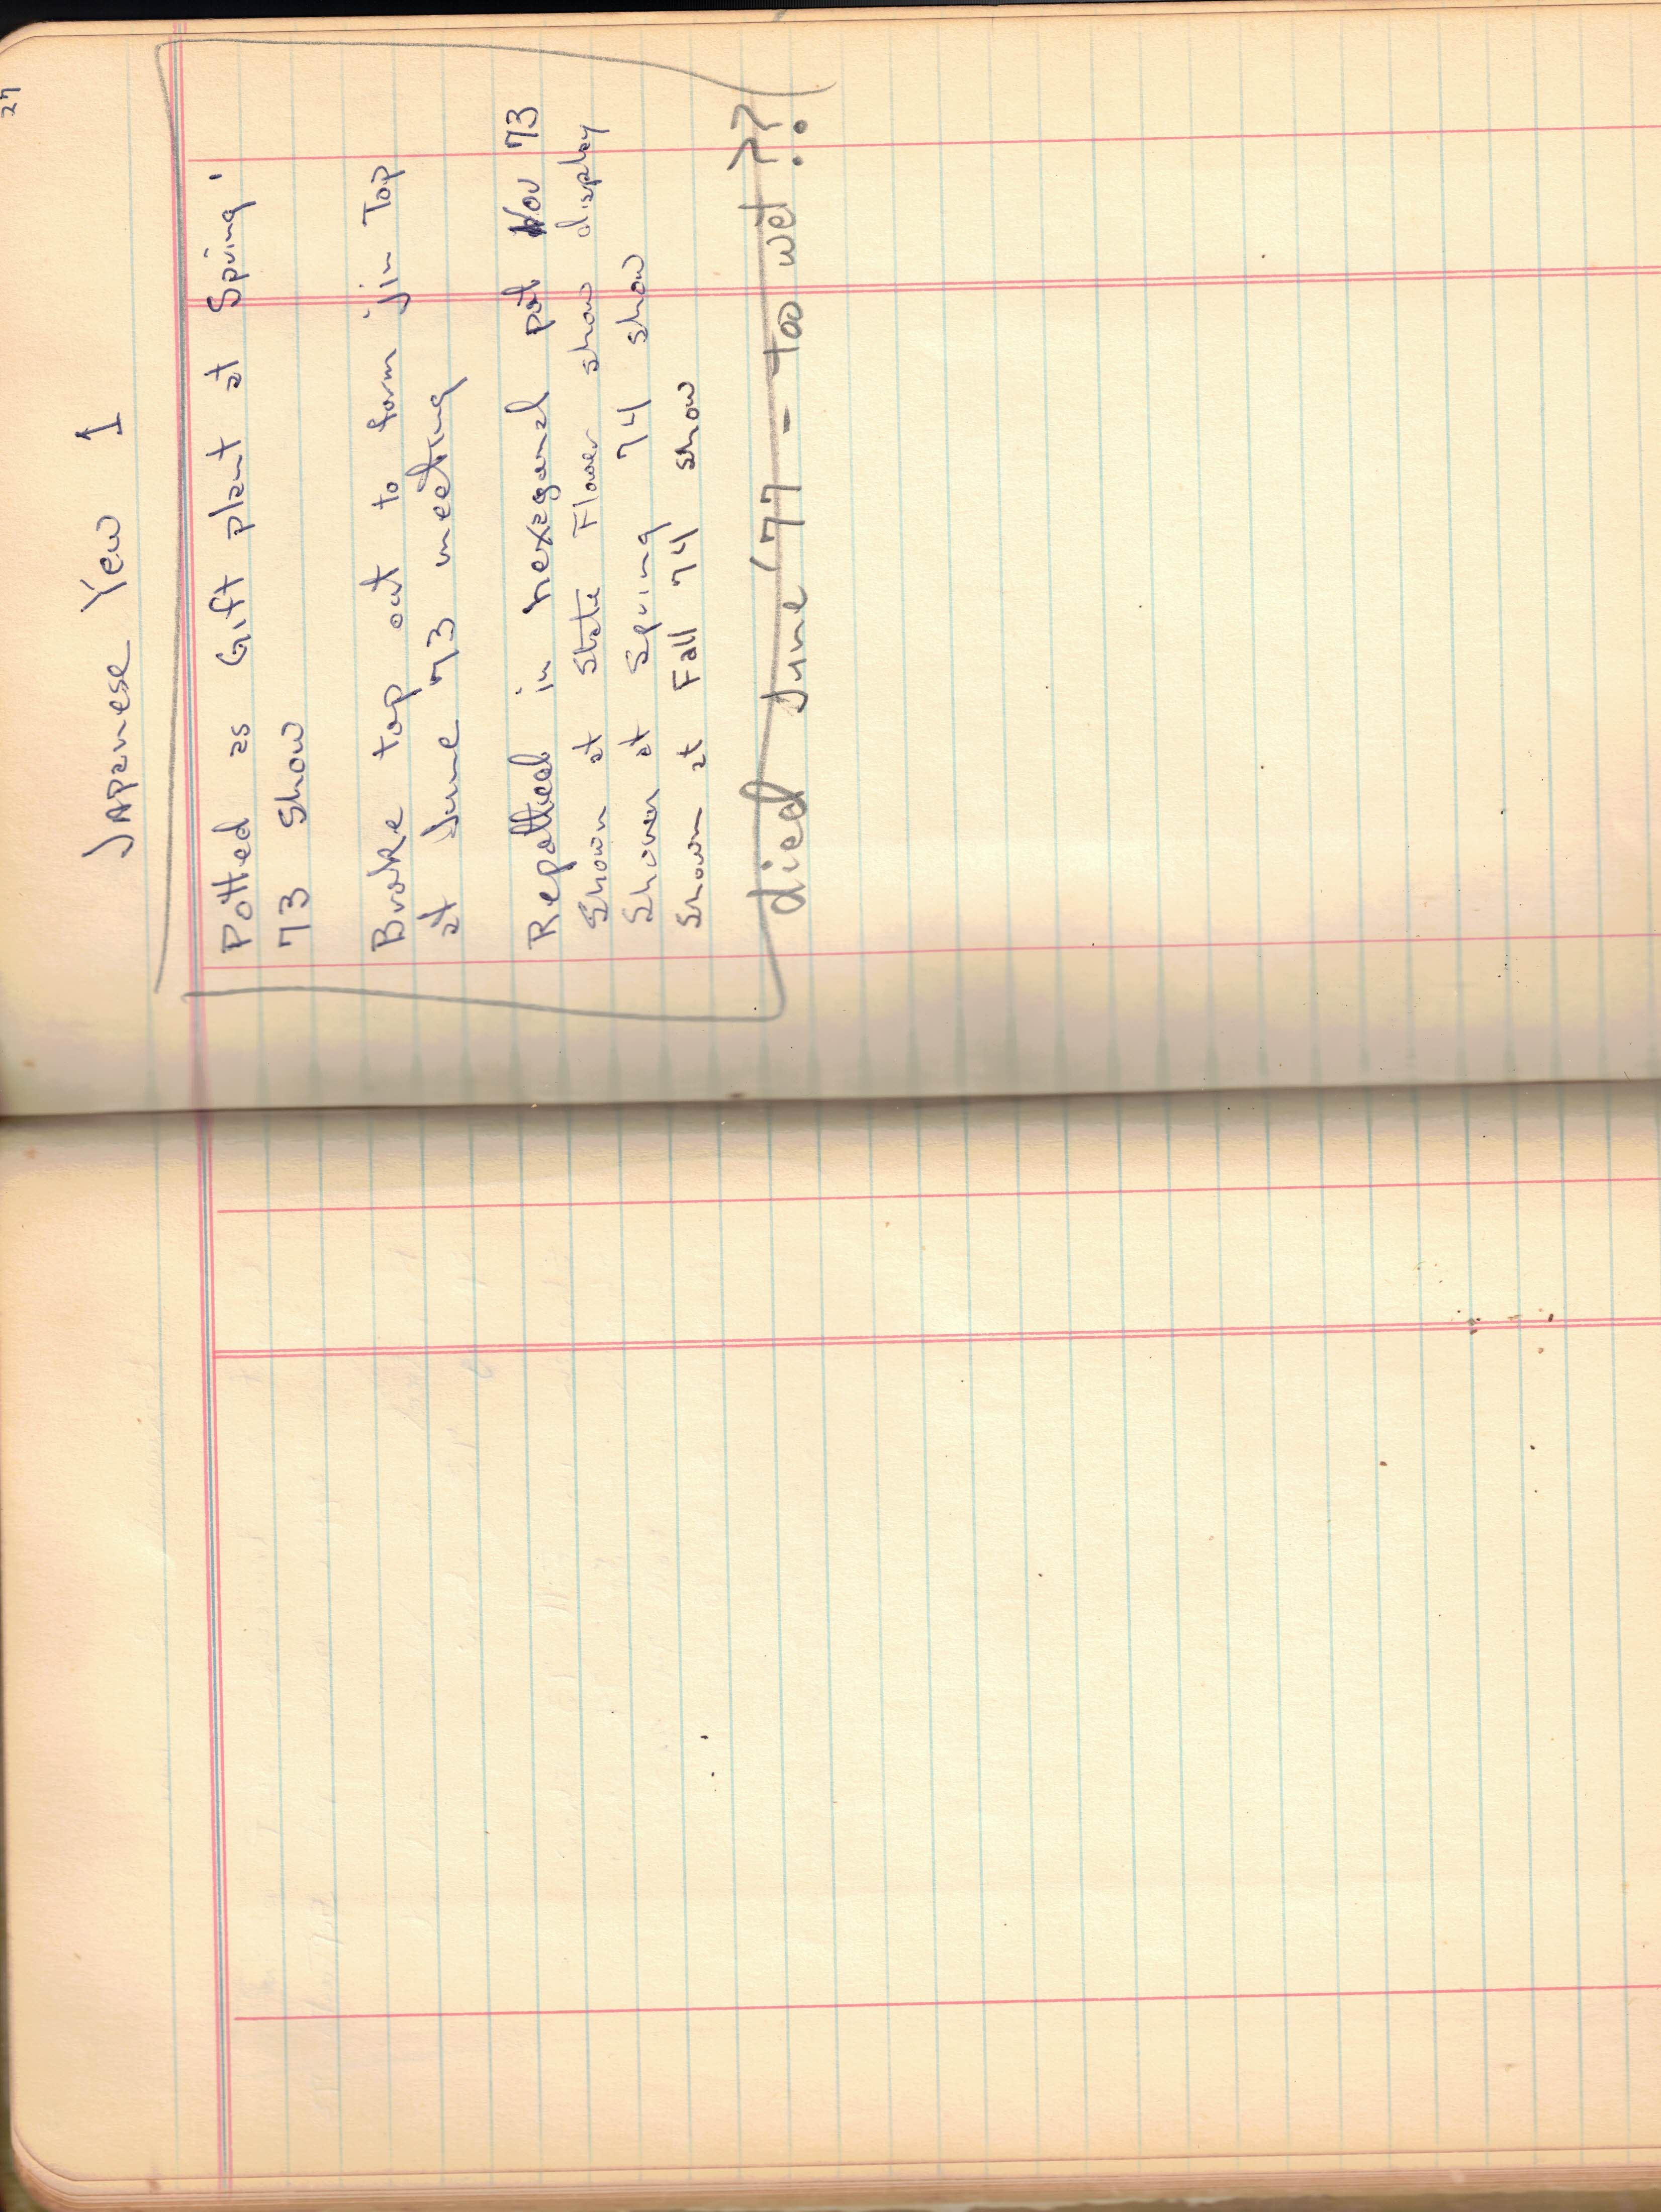 27
Japanese Yew 1
Potted as Gift plant at Spring '
73 show
Broke top out to form jin Top
at June 73 meeting
Repotted in hexagonal pot Nov 73
Shown at State Flower show display
Shown at Spring 74 show
Shown at Fall 74 show
died June '77 - too wet ??